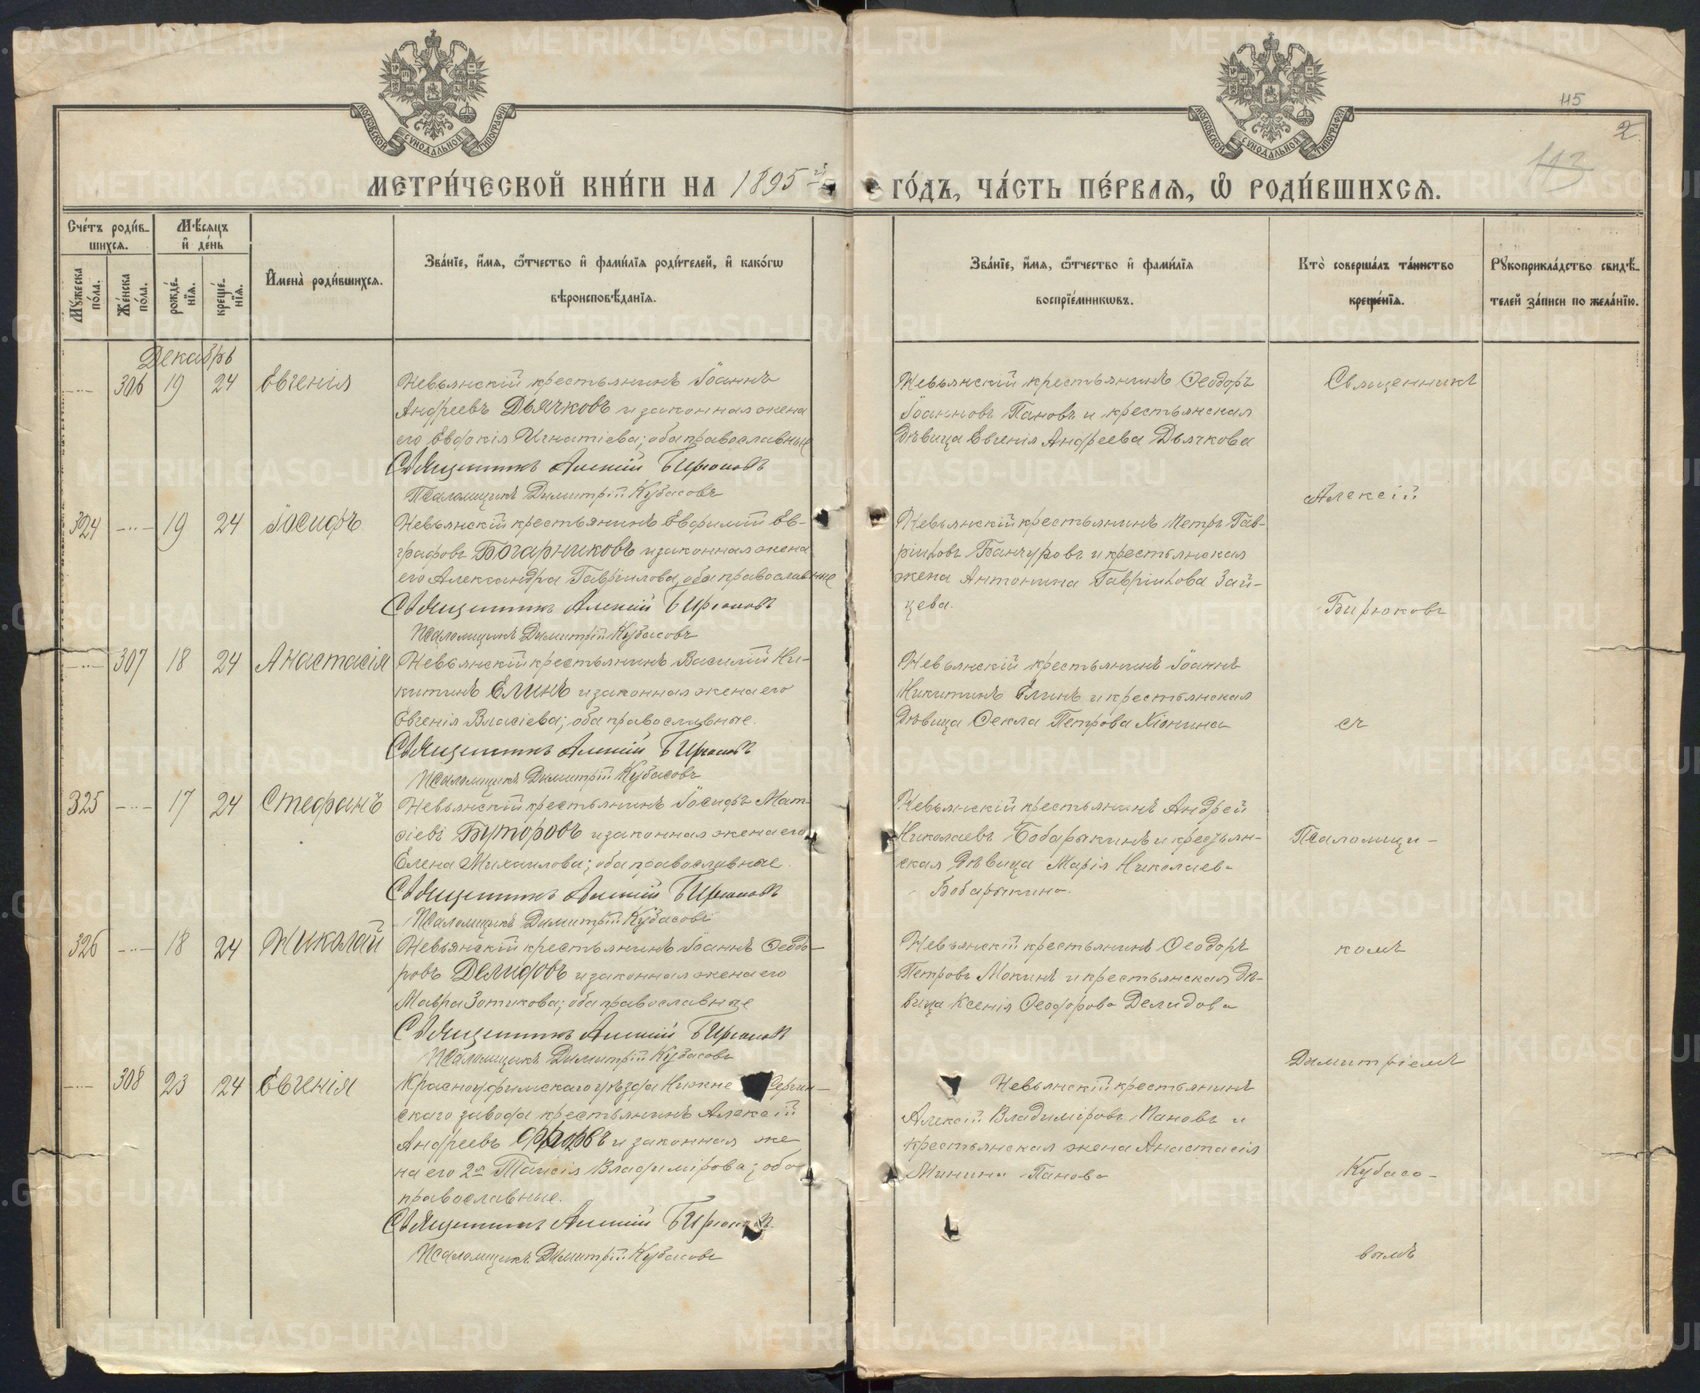 115
2
113
МЕТРИ́ЧЕСКОЙ КНИ́ГИ НА 1895-й ГО́ДЪ, ЧА́СТЬ ПЕ́РВАѦ, Ѡ҆ РОДИ́ВШИХСѦ.
Сче́тъ роди́в-
шихсѧ.
Мꙋ́жеска по́ла.
Же́нска по́ла.
Мѣ́сѧцъ и҆ де́нь
рожде́-нїѧ.
креще́-нїѧ.
И҆мена̀ роди́вшихсѧ.
Зва́нїе, и҆́мѧ, ѻ҆́тчество и҆ фами́лїѧ роди́телей, и҆ како́гѡ
вѣроисповѣ́данїѧ.
Зва́нїе, и҆́мѧ, ѻ҆́тчество и҆ фами́лїѧ
воспрїе́мникѡвъ.
Кто̀ соверша́лъ та́инство
креще́нїѧ.
Рꙋкоприкла́дство свидѣ́-
телей за́писи по жела́нїю.
Декабрь
306 19 24 Евгенія
Невьянскій крестьянинъ Іоаннъ
Андреевъ Дьячковъ и законная жена
его Евдокія Игнатіева; оба православные
Священникъ Алексій Бирюковъ
Псаломщикъ Димитрій Кубасовъ
Невьянскій крестьянинъ Ѳеодоръ
Іоанновъ Пановъ и крестьянская
дѣвица Евгенія Андреева Дьячкова
Священникъ
Алексій
324 19 24 Іосифъ
Невьянскій крестьянинъ Евфимій Ев-
графовъ Богарниковъ и законная жена
его Александра Гавріилова, оба православные
Священникъ Алексій Бирюковъ
Псаломщикъ Димитрій Кубасовъ
Невьянскій крестьянинъ Петръ Гав-
ріиловъ Банчуровъ и крестьянская
жена Антонина Гавріилова Зай-
цева.
Бирюковъ
307 18 24 Анастасія
Невьянскій крестьянинъ Василій Ни-
китинъ Елинъ и законная жена его
Евгенія Власіева; оба православные.
Священникъ Алексій Бирюковъ
Псаломщикъ Димитрій Кубасовъ
Невьянскій крестьянинъ Іоаннъ
Никитинъ Елинъ и крестьянская
дѣвица Ѳекла Петрова Хіонина
съ
325 17 24 Стефанъ
Невьянскій крестьянинъ Іосифъ Мат-
ѳіевъ Буторовъ и законная жена его
Елена Михаилова; оба православные.
Священникъ Алексій Бирюковъ
Псаломщикъ Димитрій Кубасовъ
Невьянскій крестьянинъ Андрей
Николаевъ Бобарыкинъ и крестьян-
ская дѣвица Марія Николаева
Бобарыкина.
Псаломщи-
326 18 24 Николай
Невьянскій крестьянинъ Іоаннъ Ѳеодо-
ровъ Делидовъ и законная жена его
Мавра Зотикова; оба православные
Священникъ Алексій Бирюковъ
Псаломщикъ Димитрій Кубасовъ
Невьянскій крестьянинъ Ѳеодоръ
Петровъ Мокинъ и крестьянская дѣ-
вица Ксенія Ѳеодорова Делидова
комъ
Димитріемъ
308 23 24 Евгенія
Красноуфимскаго уѣзда Нижне Сергин-
скаго завода крестьянинъ Алексій
Андреевъ и законная же-
на его 2я Таисія Владимірова; оба
православные.
Священникъ Алексій Бирюковъ
Псаломщикъ Димитрій Кубасовъ
Невьянскій крестьянинъ
Алексій Владиміровъ Пановъ и
крестьянская жена Анастасія
Минина Панова
Кубасо-
вымъ